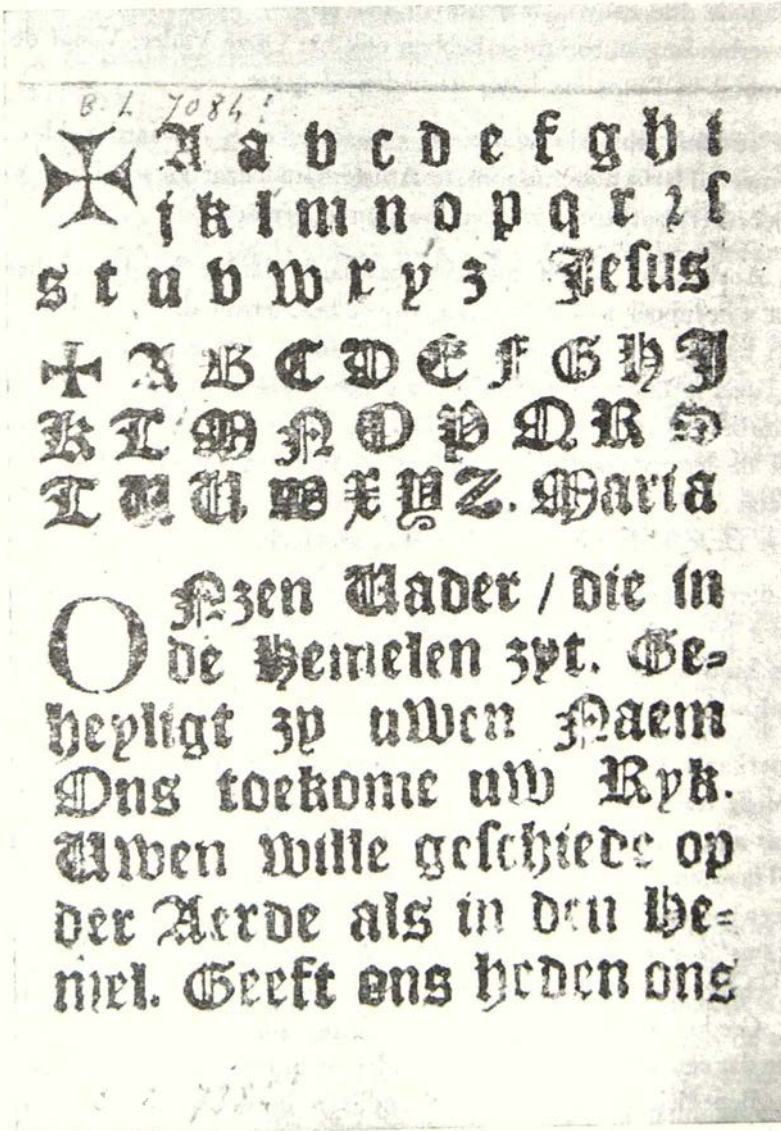 B L 7084
✠ A a b c d e f g h i
j k l m n o p q r ꝛ ſ
s t u v w x ÿ z Jeſus
✠ A B C D E F G H J
K L M N O P Q R S
T V U W X Y Z. Maria
ONzen Vader / die in
de Hemelen zyt. Ge=
heyligt zy uwen Naem
Ons toekome uw Ryk.
Uwen wille geſchiede op
der Aerde als in den He=
mel. Geeft ons heden ons